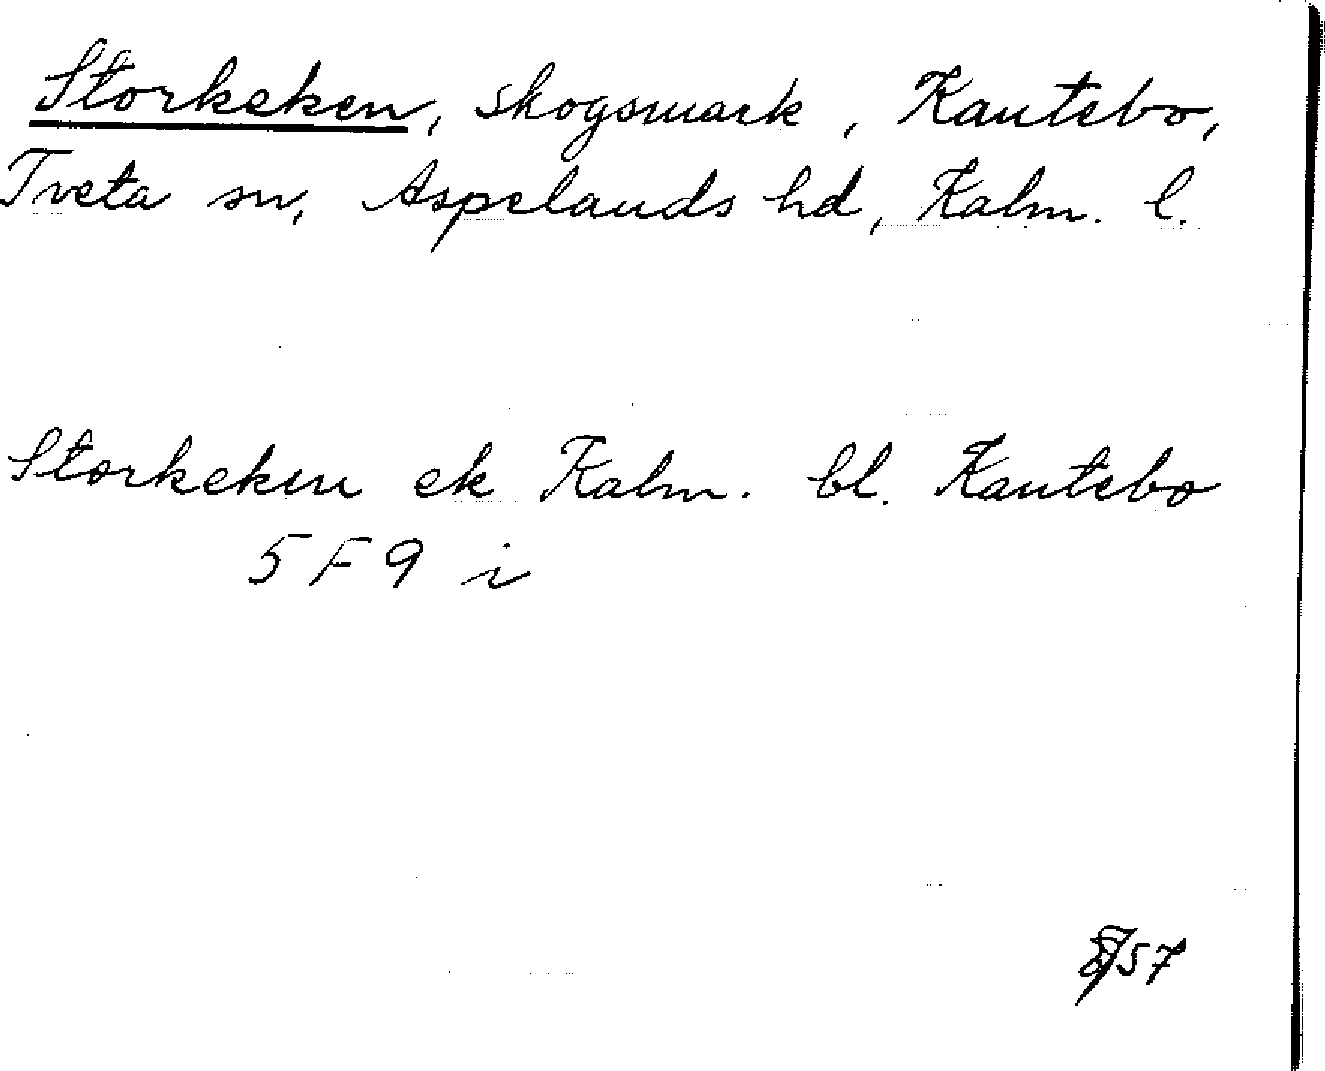 Storkeken, skogsmark, Kantebo,
Tveta sn, Aspelands hd, Kalm. l.
Storkeken ek Kalm. bl. Kantebo
5F9 i
57